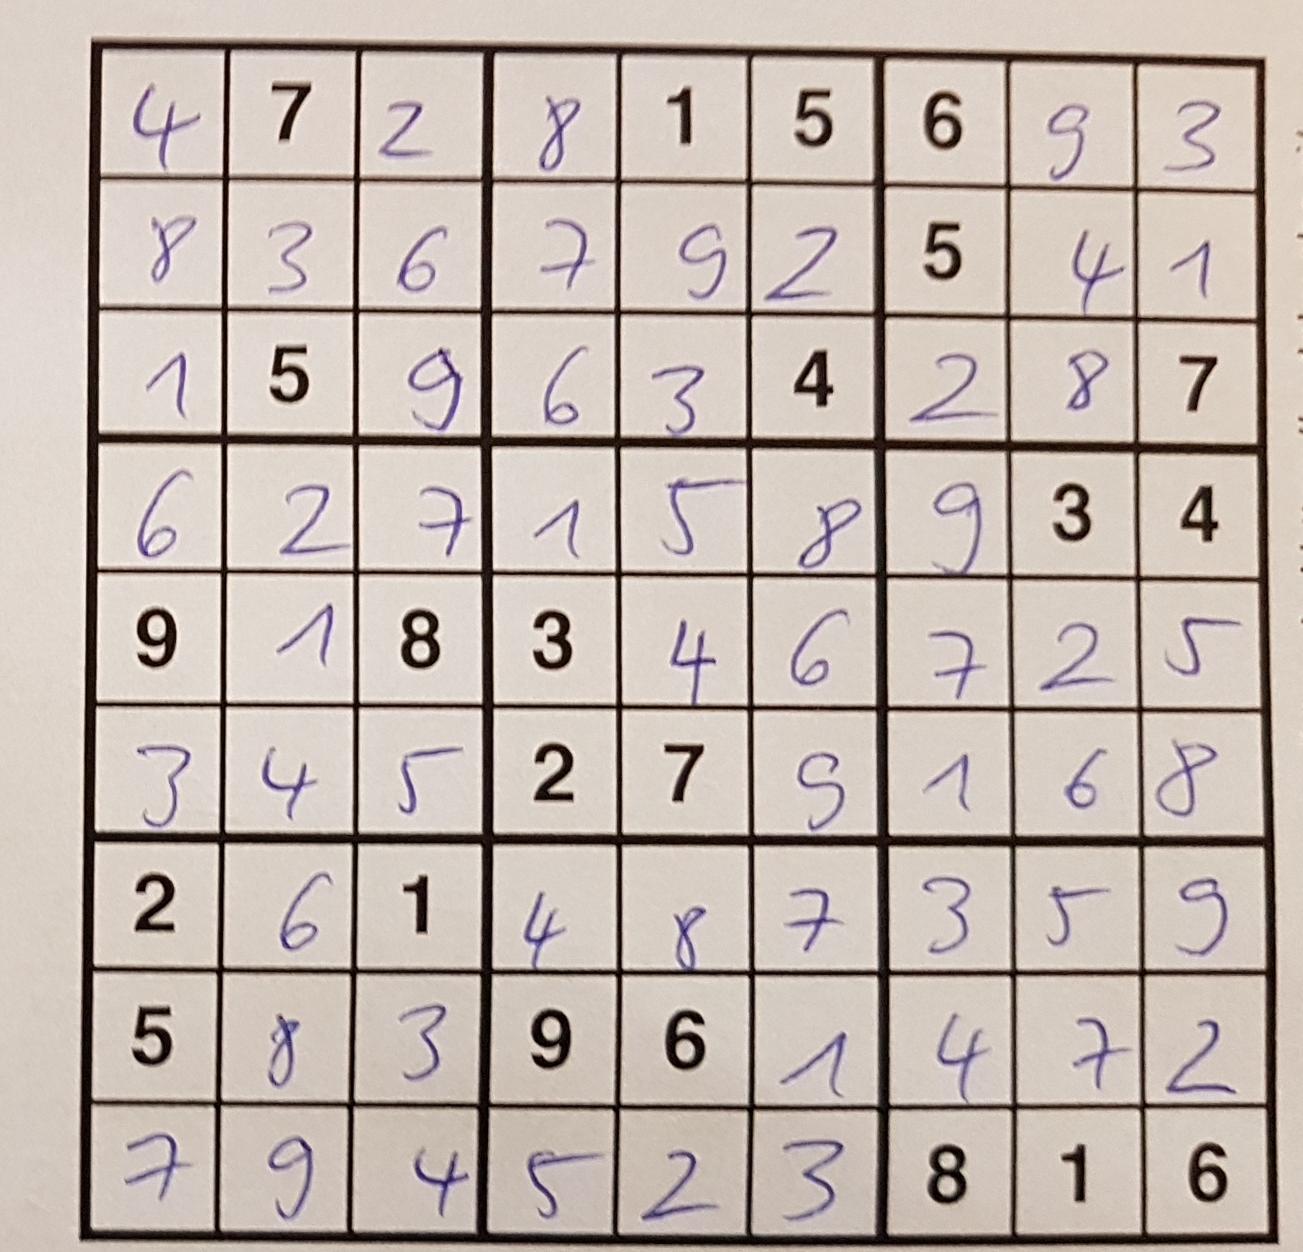 4 7 2 8 1 5 6 9 3
8 3 6 7 9 2 5 4 1
1 5 9 6 3 4 2 8 7
6 2 7 1 5 8 9 3 4
9 1 8 3 4 6 7 2 5
3 4 5 2 7 9 1 6 8
2 6 1 4 8 7 3 5 9
5 8 3 9 6 1 4 7 2
7 9 4 5 2 3 8 1 6